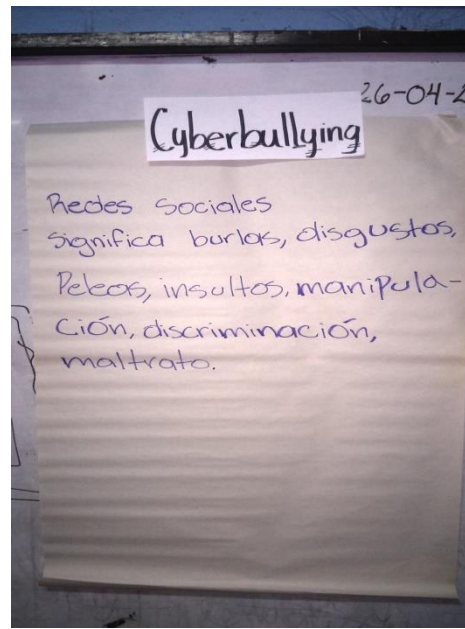 26-04-2
Cyberbullying
Redes Sociales
significa burlas, disgustos,
Peleas, insultos, manipula-
ción, discriminación,
maltrato.